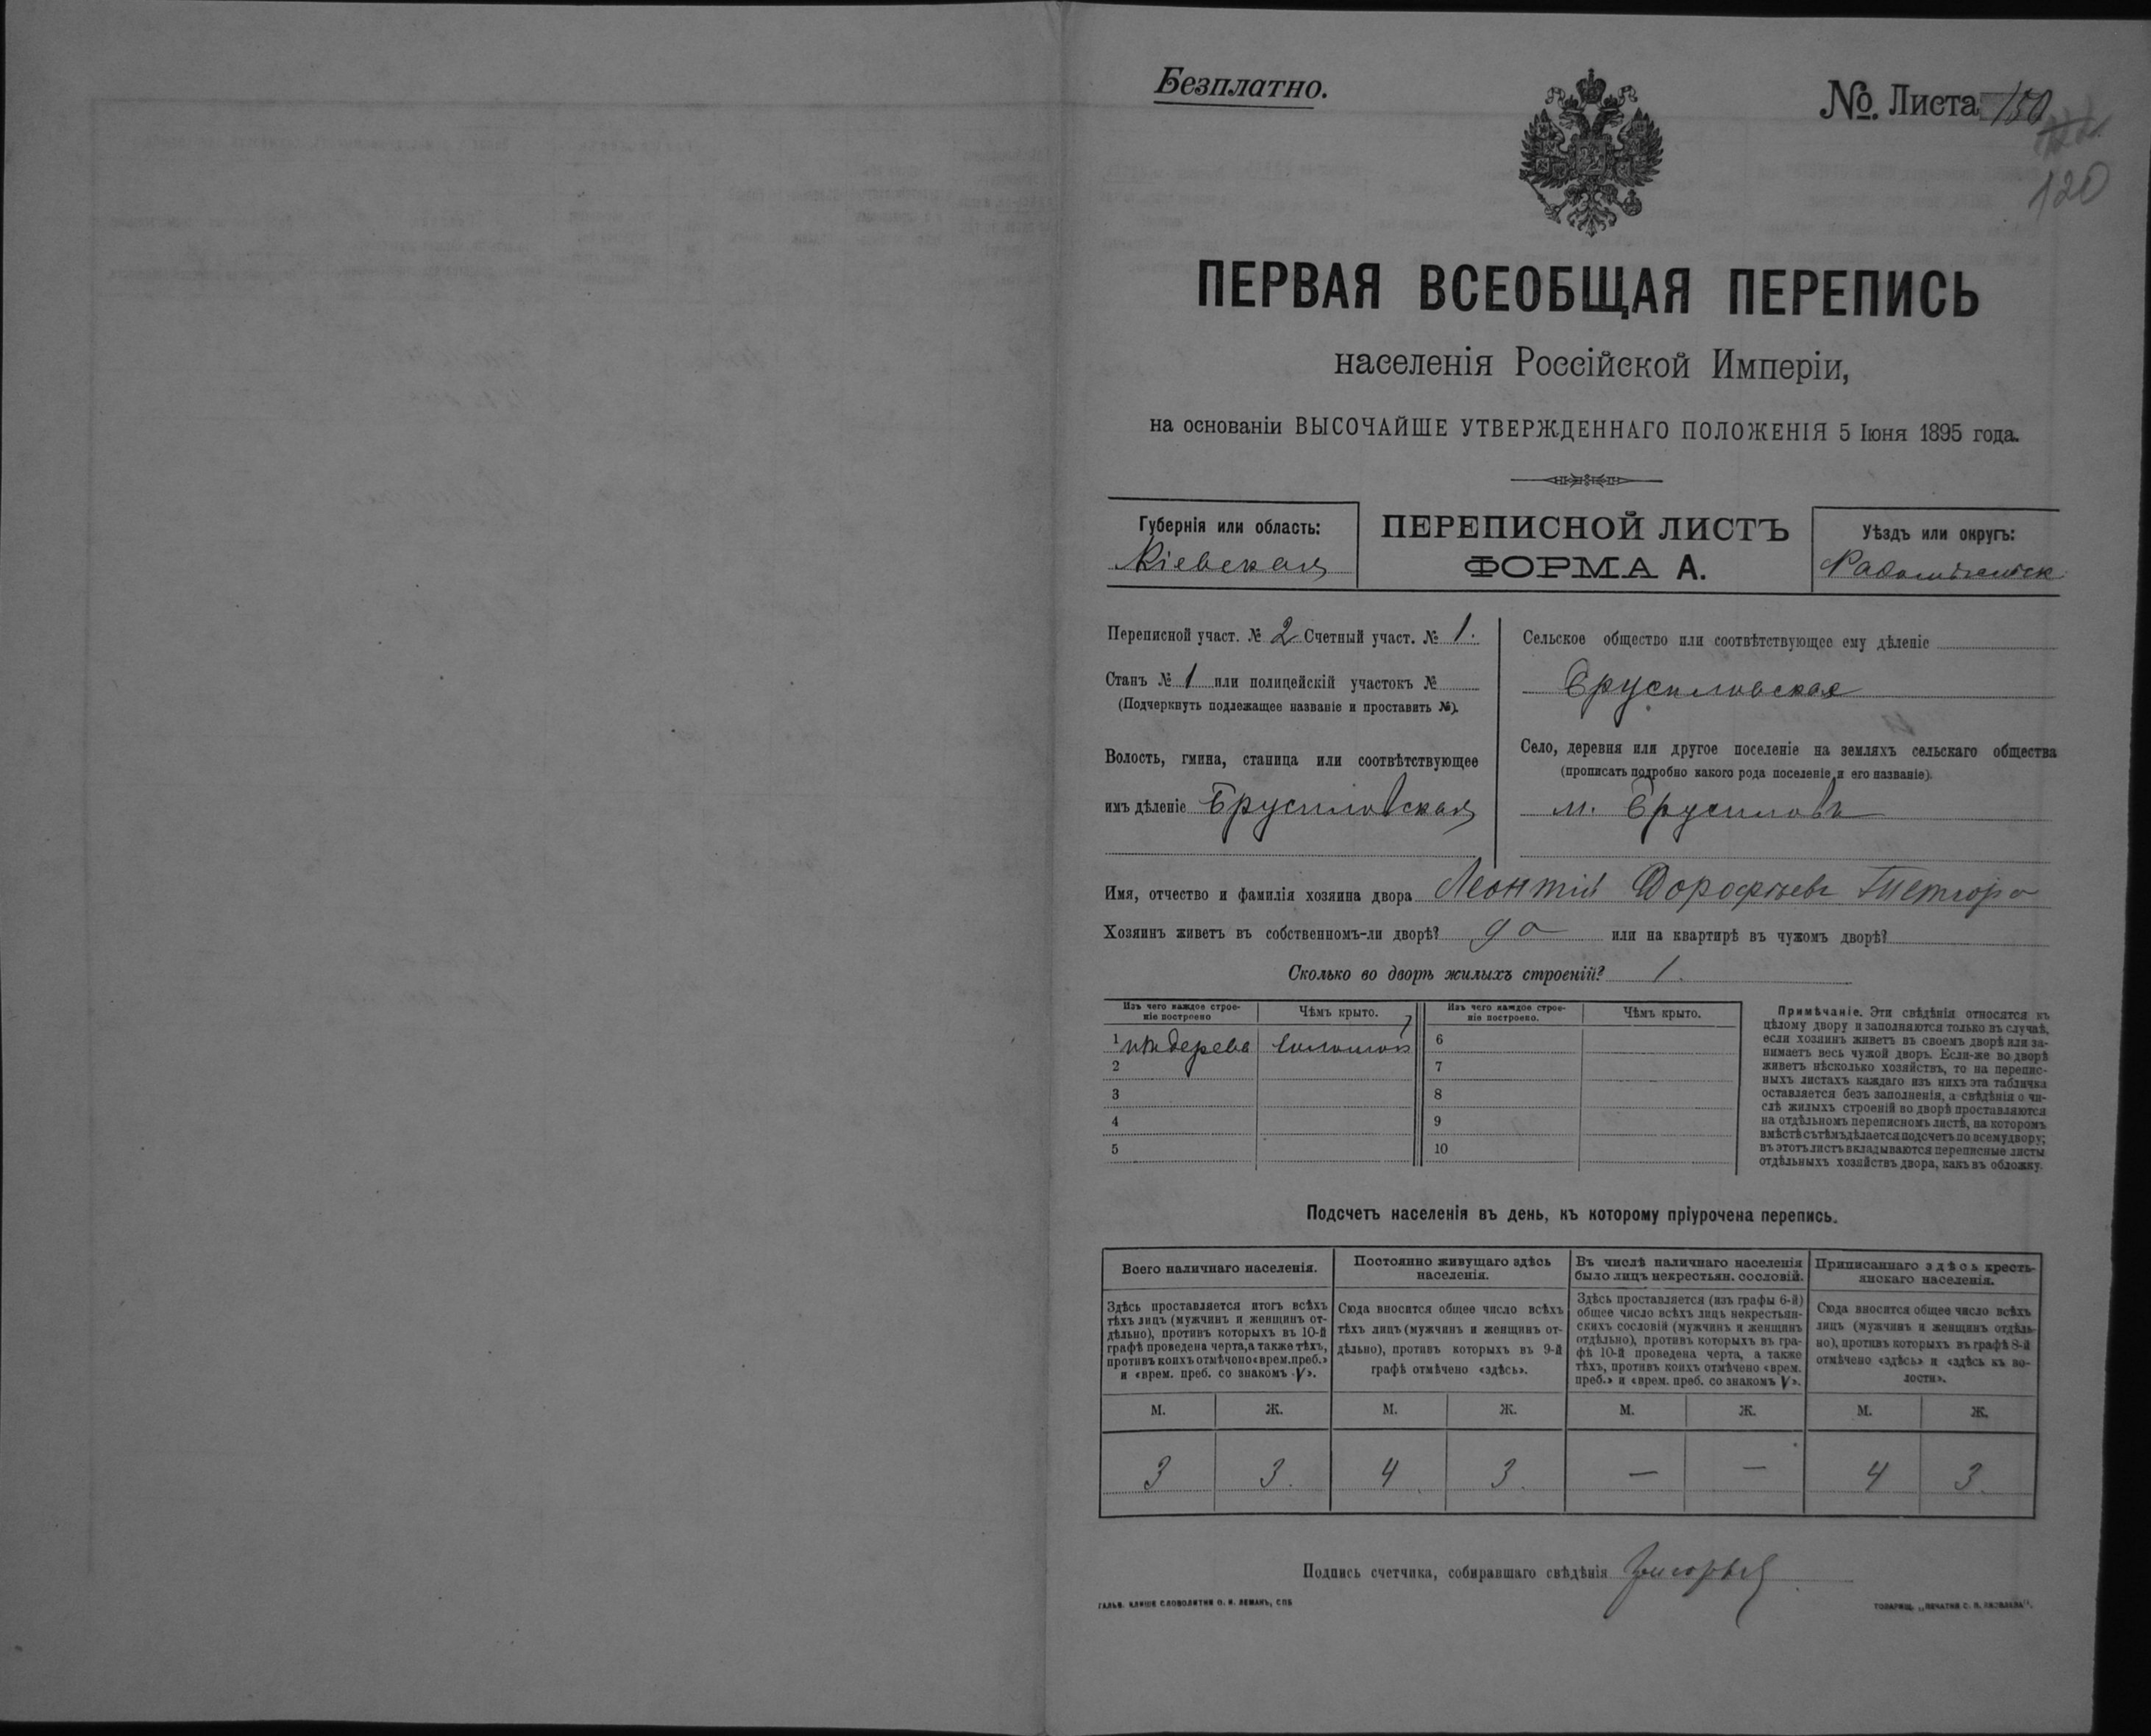 Безплатно.
№. Листа 150
120
ПЕРВАЯ ВСЕОБЩАЯ ПЕРЕПИСЬ
населенія Россійской Имперіи,
на основаніи ВЫСОЧАЙШЕ УТВЕРЖДЕННАГО ПОЛОЖЕНІЯ 5 Іюня 1895 года.
Губернія или область:
Кіевская
ПЕРЕПИСНОЙ ЛИСТЪ
ФОРМА А.
Уѣздъ или округъ:
Радомысльск
Переписной участ. № 2 Счетный участ. № 1.
Станъ № 1 или полицейскій участокъ №
(Подчеркнуть подлежащее названіе и проставить №).
Волость, гмина, станица или соотвѣтствующее
имъ дѣленіе Брусиловская
Сельское общество или соотвѣтствующее ему дѣленіе
Брусиловская
Село, деревня или другое поселеніе на земляхъ сельскаго общества
(прописать подробно какого рода поселеніе и его названіе).
м. Брусиловъ
Имя, отчество и фамилія хозяина двора Леонтій Дорофѣевъ
Хозяинъ живетъ въ собственномъ-ли дворѣ? да или на квартирѣ въ чужомъ дворѣ?
Сколько во дворѣ жилыхъ строеній? 1.
Изъ чего каждое строе-
ніе построено
Чѣмъ крыто.
Изъ чего каждое строе-
ніе построено.
Чѣмъ крыто.
1 изъ дерева соломой 6
2 7
3 8
4 9
5 10
Примѣчаніе. Эти свѣдѣнія относятся къ
цѣлому двору и заполняются только въ случаѣ,
если хозяинъ живетъ въ своемъ дворѣ или за-
нимаетъ весь чужой дворъ. Если-же во дворѣ
живетъ нѣсколько хозяйствъ, то на перепис-
ныхъ листахъ каждаго изъ нихъ эта табличка
оставляется безъ заполненія, а свѣдѣнія о чи-
слѣ жилыхъ строеній во дворѣ проставляются
на отдѣльномъ переписномъ листѣ, на которомъ
вмѣстѣ съ тѣмъ дѣлается подсчетъ по всему двору;
въ этотъ листъ вкладываются переписные листы
отдѣльныхъ хозяйствъ двора, какъ въ обложку.
Подсчетъ населенія въ день, къ которому пріурочена перепись.
Всего наличнаго населенія.
Здѣсь проставляется итогъ всѣхъ
тѣхъ лицъ (мужчинъ и женщинъ от-
дѣльно), противъ которыхъ въ 10-й
графѣ проведена черта, а также тѣхъ,
противъ коихъ отмѣчено «врем. преб.»
и «врем. преб. со знакомъ V».
Постоянно живущаго здѣсь
населенія.
Сюда вносится общее число всѣхъ
тѣхъ лицъ (мужчинъ и женщинъ от-
дѣльно), противъ которыхъ въ 9-й
графѣ отмѣчено «здѣсь».
Въ числѣ наличнаго населенія
было лицъ некрестьян. сословій.
Здѣсь проставляется (изъ графы 6-й)
общее число всѣхъ лицъ некрестьян-
скихъ сословій (мужчинъ и женщинъ
отдѣльно), противъ которыхъ въ гра-
фѣ 10-й проведена черта, а также
тѣхъ, противъ коихъ отмѣчено «врем.
преб.» и «врем. преб. со знакомъ V».
Приписаннаго здѣсь кресть-
янскаго населенія.
Сюда вносится общее число всѣхъ
лицъ (мужчинъ и женщинъ отдѣль-
но), противъ которыхъ въ графѣ 8-й
отмѣчено «здѣсь» и «здѣсь къ во-
лости».
М. Ж. М. Ж. М. Ж. М. Ж.
3 3. 4 3. — — 4 3.
Подпись счетчика, собиравшаго свѣдѣнія
ГАЛЬВ. КЛИШЕ СЛОВОЛИТНИ О. И. ЛЕМАНЪ, СПБ
ТОВАРИЩ. „ПЕЧАТНЯ С. П. ЯКОВЛЕВА".